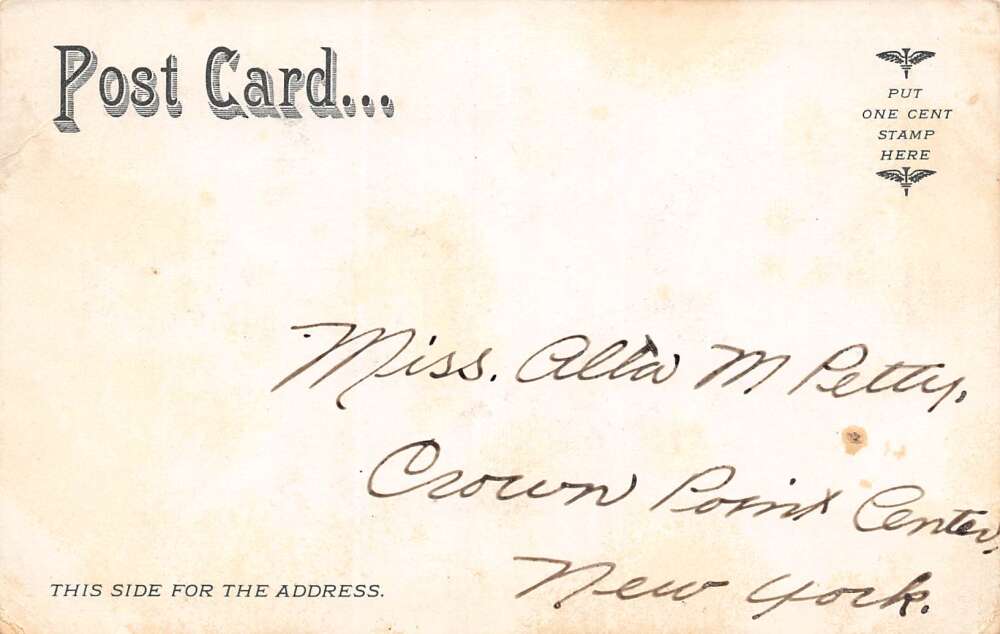 Post Card...
PUT
ONE CENT
STAMP
HERE
Miss. Alta M Petty,
Crown Point Center,
New York.
THIS SIDE FOR THE ADDRESS.